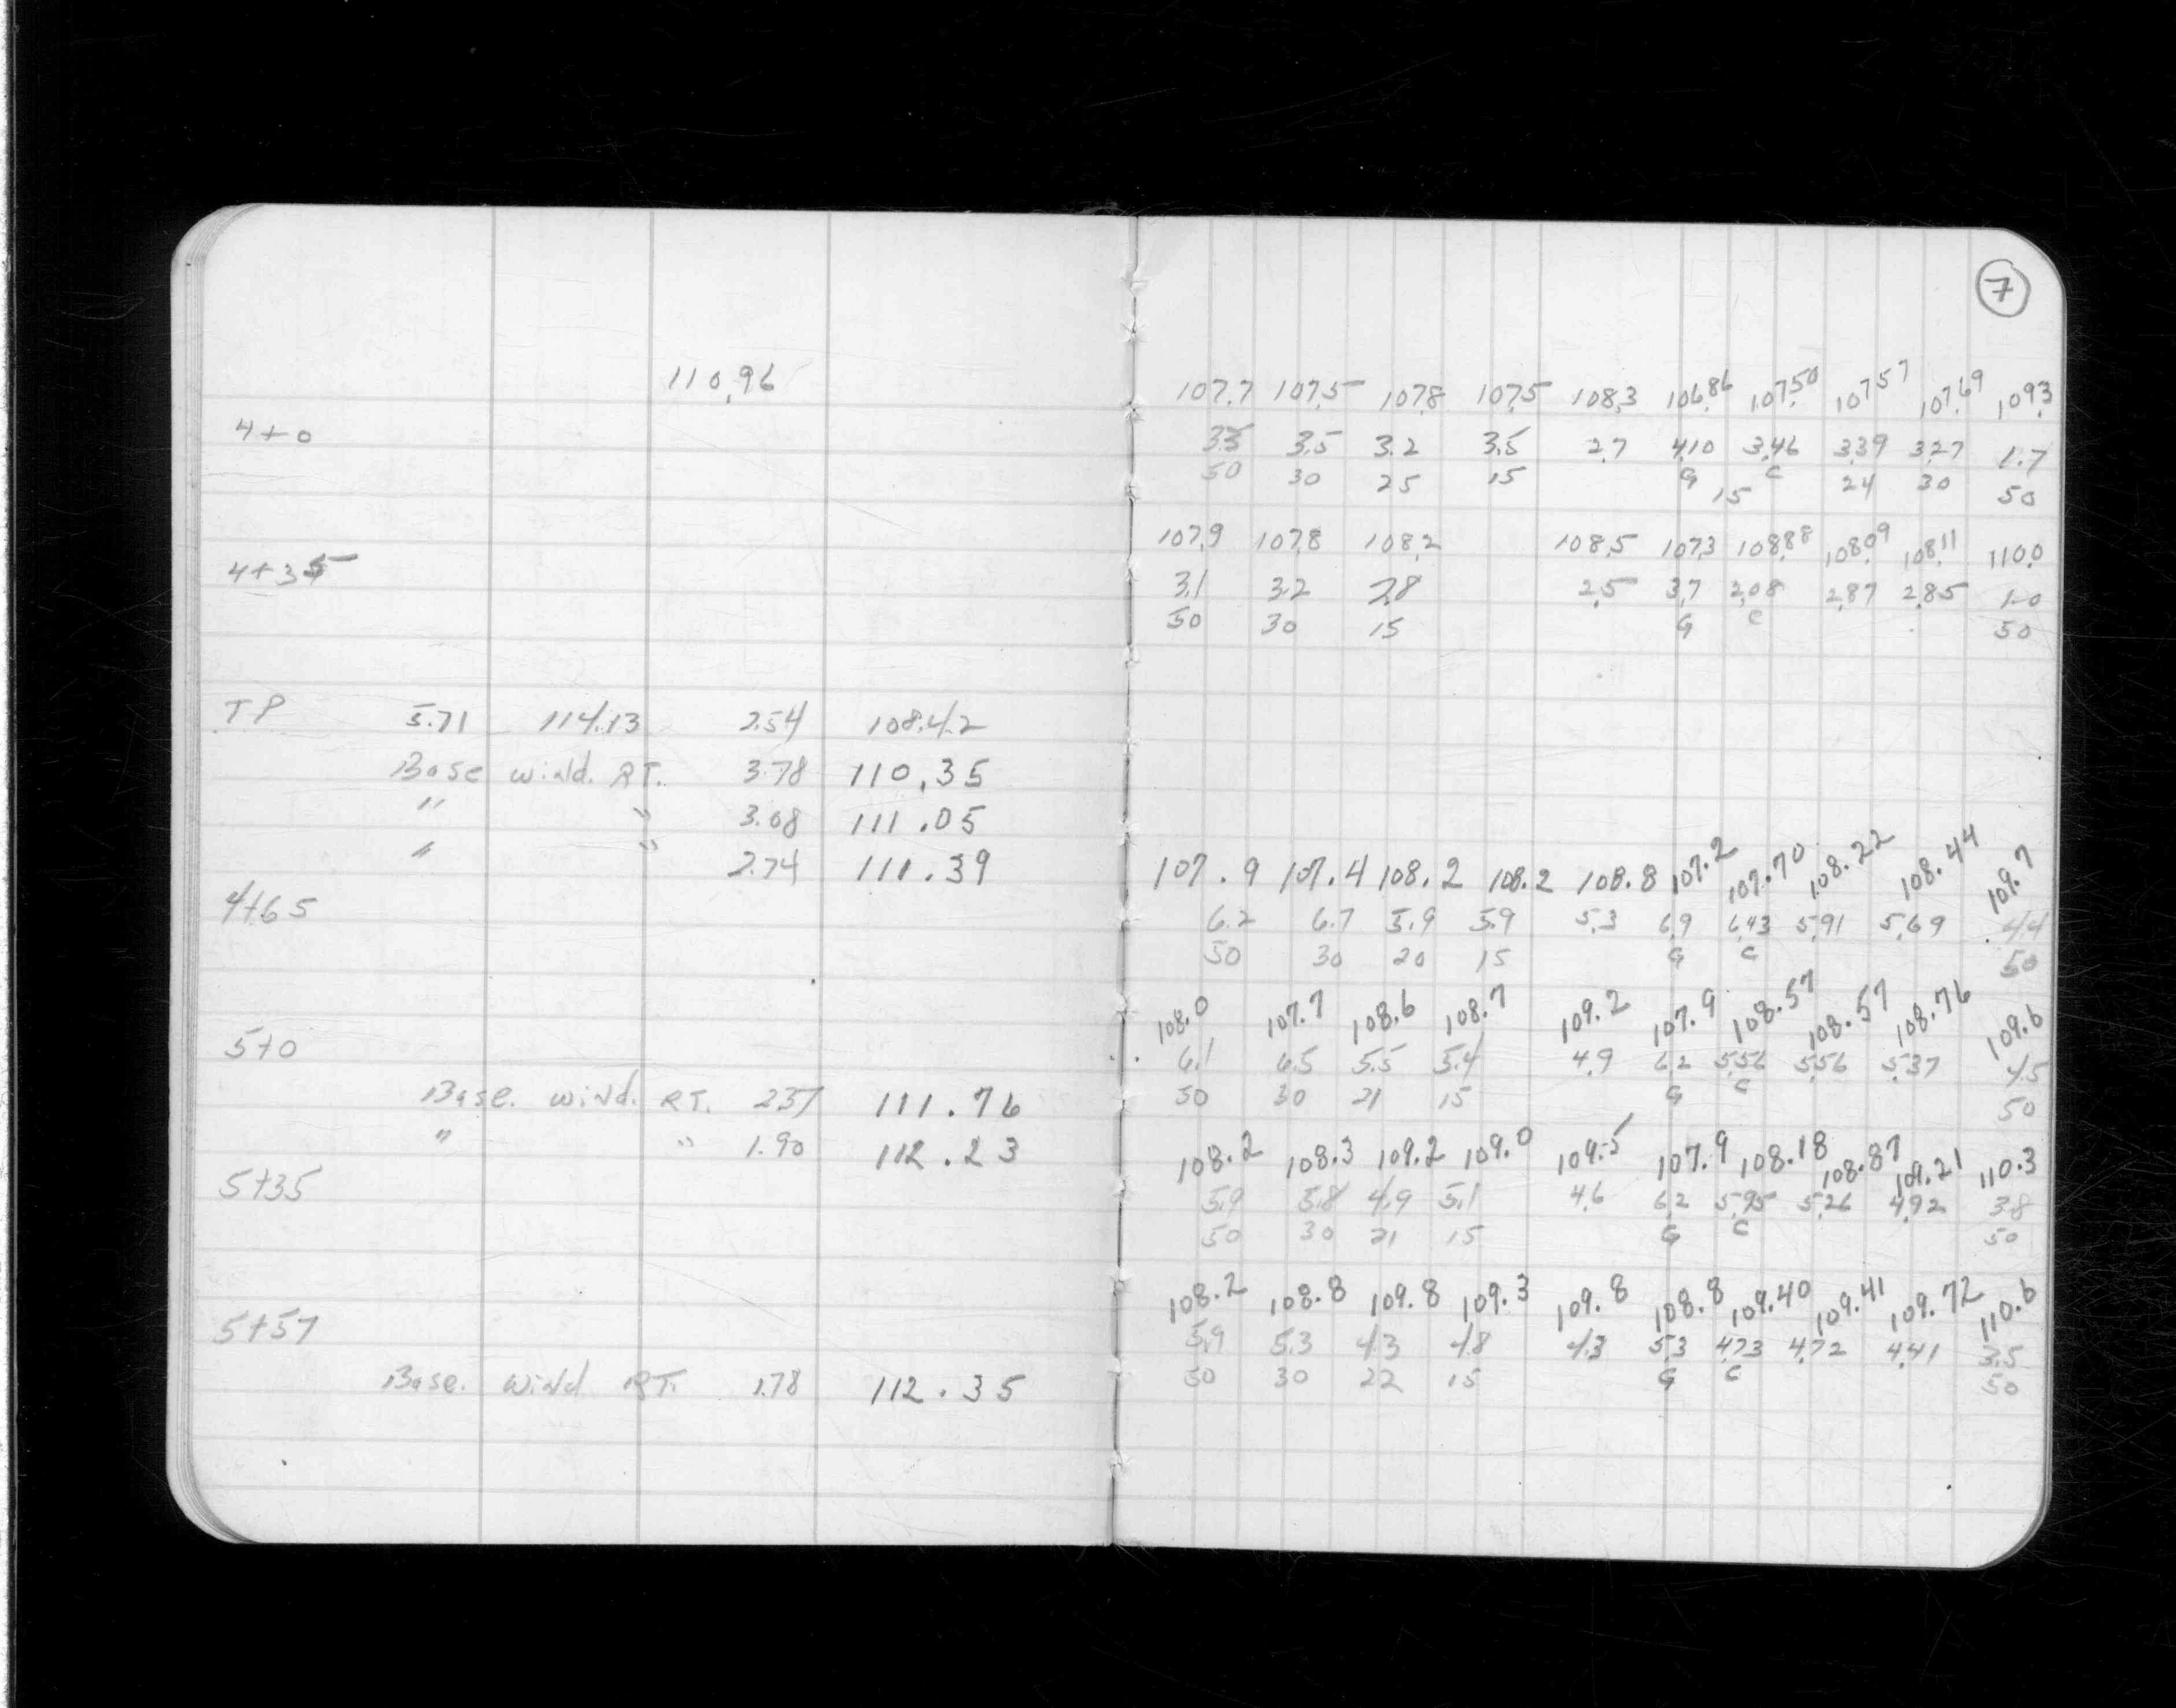 7
110.96
107.7 107.5 107.8 107.5 108.3 106.86 107.50 107.57 107.69 109.3
4+0 3.3 3.5 3.2 3.5 2.7 4.10 3.46 3.39 3.27 1.7
50 30 25 15 G 15 C 24 30 50
107.9 107.8 108.2 108.5 107.3 108.88 108.09 108.11 110.0
4+35 3.1 3.2 2.8 2.5 3.7 2.08 2.87 2.85 1.0
50 30 15 G C 50
TP 5.71 114.13 2.54 108.42
Base wind. RT. 3.78 110.35
" " 3.08 111.05
" " 2.74 111.39
107.9 107.4 108.2 108.2 108.8 107.2 107.70 108.22 108.44 109.7
4+65 6.2 6.7 5.9 5.9 5.3 6.9 6.43 5.91 5.69 4.4
50 30 20 15 G C 50
108.0 107.7 108.6 108.7 109.2 107.9 108.57 108.57 108.76 109.6
5+0 6.1 6.5 5.5 5.4 4.9 6.2 5.56 5.56 5.37 4.5
50 30 21 15 G C 50
Base. wind. RT. 2.37 111.76
" " 1.90 112.23
108.2 108.3 109.2 109.0 109.5 107.9 108.18 108.87 109.21 110.3
5+35 5.9 5.8 4.9 5.1 4.6 6.2 5.95 5.26 4.92 3.8
50 30 21 15 G C 50
108.2 108.8 109.8 109.3 109.8 108.8 109.40 109.41 109.72 110.6
5+57 5.9 5.3 4.3 4.8 4.3 5.3 4.73 4.72 4.41 3.5
50 30 22 15 G C 50
Base. wind RT. 1.78 112.35